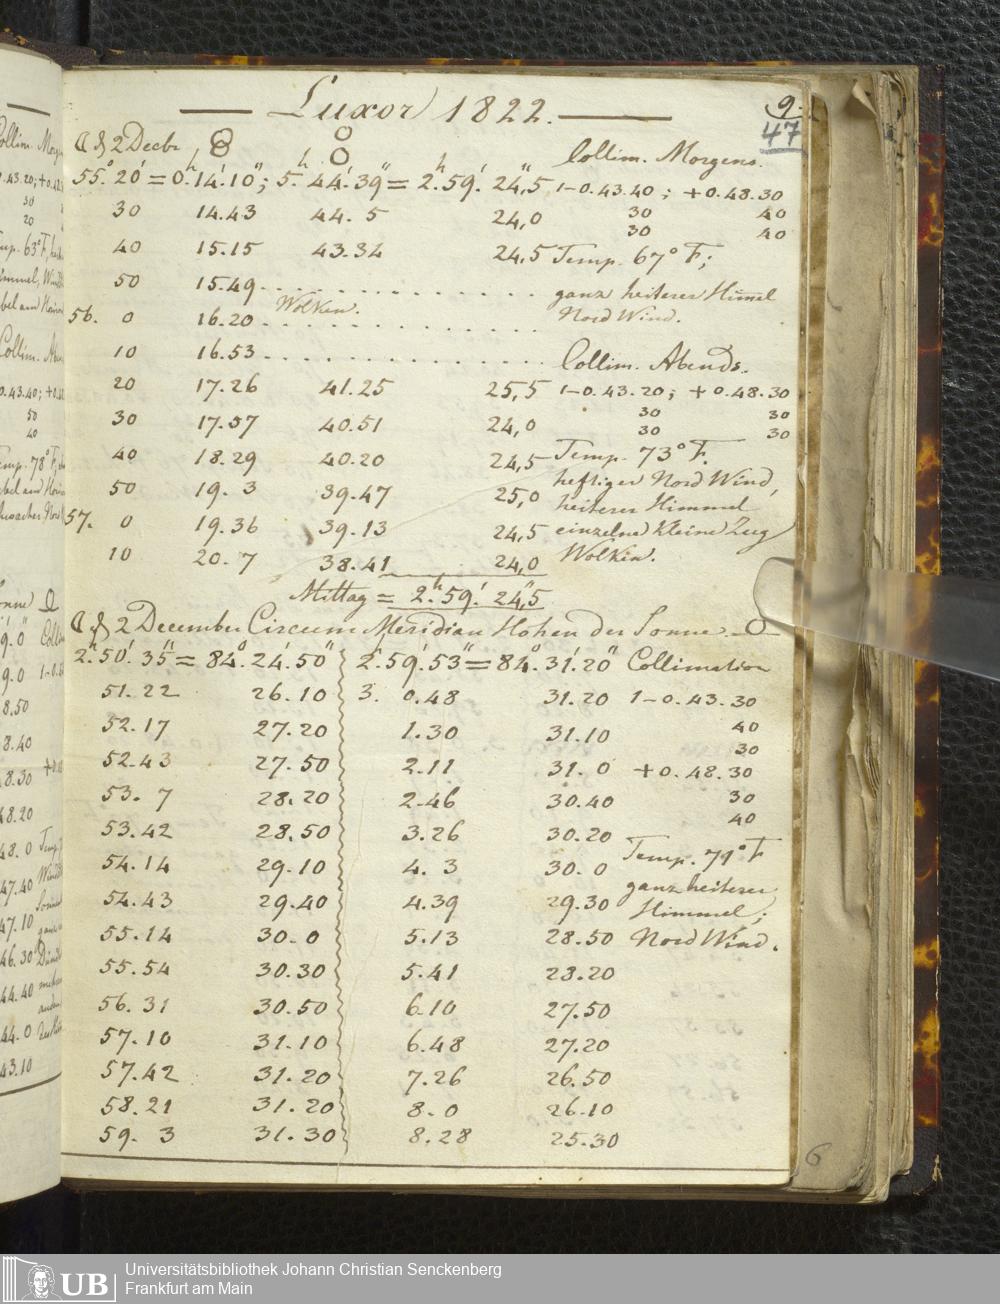 Luxor 1822.
9.
47
☾ d 2 Decbr
55.° 20' = 0.h 14.' 10"; 5.h 44.' 39" = 2.h 59.' 24",5
30 14.43 44. 5 24,0
40 15.15 43.34 24,5
50 15.49. . . . . . . . . . . . .
Wolken.
56. 0 16.20. . . . . . . . . . . . .
10 16.53. . . . . . . . . . . . .
20 17.26 41.25 25,5
30 17.57 40.51 24,0
40 18.29 40.20 24,5
50 19. 3 39.47 25,0
57. 0 19.36 39.13 24,5
10 20. 7 38.41 24,0
Mittag = 2.h 59.' 24",5
Collim. Morgens.
1-0.43.40; +0.48.30
30 40
30 40
Temp. 67° F;
ganz heiterer Himel
Nord Wind.
Collim. Abends.
1-0.43.20; +0.48.30
30 30
30 30
Temp. 73° F.
heftiger Nord Wind,
heiterer Himmel
einzelne kleine Zug
Wolken.
☾ d 2 December Circum Meridian Höhen der Sonne
2.h 50.' 35" = 84.° 24.' 50"
51.22 26.10
52.17 27.20
52.43 27.50
53. 7 28.20
53.42 28.50
54.14 29.10
54.43 29.40
55.14 30. 0
55.54 30.30
56.31 30.50
57.10 31.10
57.42 31.20
58.21 31.20
59. 3 31.30
2.h 59.' 53" = 84.° 31.' 20"
3. 0.48 31.20
1.30 31.10
2.11 31. 0
2.46 30.40
3.26 30.20
4. 3 30. 0
4.39 29.30
5.13 28.50
5.41 28.20
6.10 27.50
6.48 27.20
7.26 26.50
8. 0 26.10
8.28 25.30
Collimation
1-0.43.30
40
30
+0.48.30
30
40
Temp. 71° F
ganz heiterer
Himmel;
Nord Wind.
6
UB
Universitätsbibliothek Johann Christian Senckenberg
Frankfurt am Main